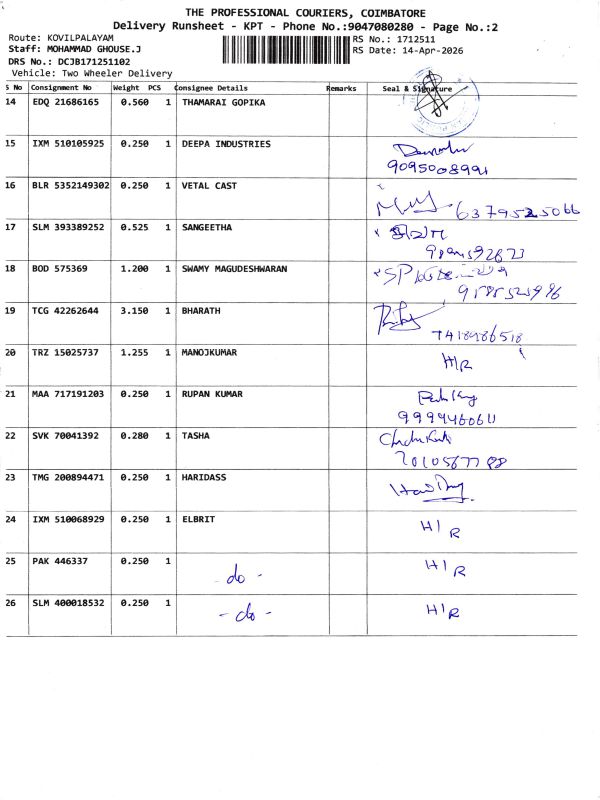 THE PROFESSIONAL COURIERS, COIMBATORE
Delivery Runsheet - KPT - Phone No.:9047080280 - Page No.:2
Route: KOVILPALAYAM
RS No.: 1712511
Staff: MOHAMMAD GHOUSE.J
RS Date: 14-Apr-2026
DRS No.: DCJB171251102
Vehicle: Two Wheeler Delivery
S No Consignment No Weight PCS Consignee Details Remarks Seal & Signature
14 EDQ 21686165 0.560 1 THAMARAI GOPIKA
15 IXM 510105925 0.250 1 DEEPA INDUSTRIES
9095008991
16 BLR 5352149302 0.250 1 VETAL CAST
6379525066
17 SLM 393389252 0.525 1 SANGEETHA
18 BOD 575369 1.200 1 SWAMY MAGUDESHWARAN
SP
19 TCG 42262644 3.150 1 BHARATH
7418986518
20 TRZ 15025737 1.255 1 MANOJKUMAR
H/R
21 MAA 717191203 0.250 1 RUPAN KUMAR
22 SVK 70041392 0.280 1 TASHA
23 TMG 200894471 0.250 1 HARIDASS
24 IXM 510068929 0.250 1 ELBRIT H/R
25 PAK 446337 0.250 1 - do - H/R
26 SLM 400018532 0.250 1 - do - H/R